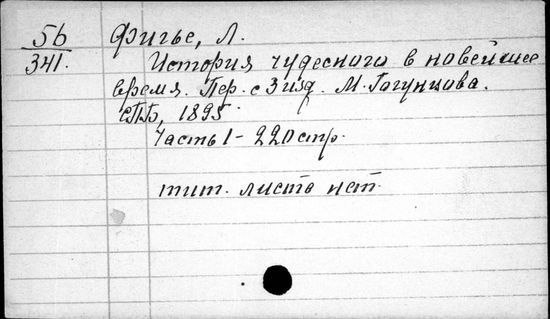 5б Фигье, Л.
341. История чудесного в новейшее
время. Пер. с 3 изд. М. Гогунцова.
СПБ, 1895
Часть I - 220 стр.
тит. листъ нет